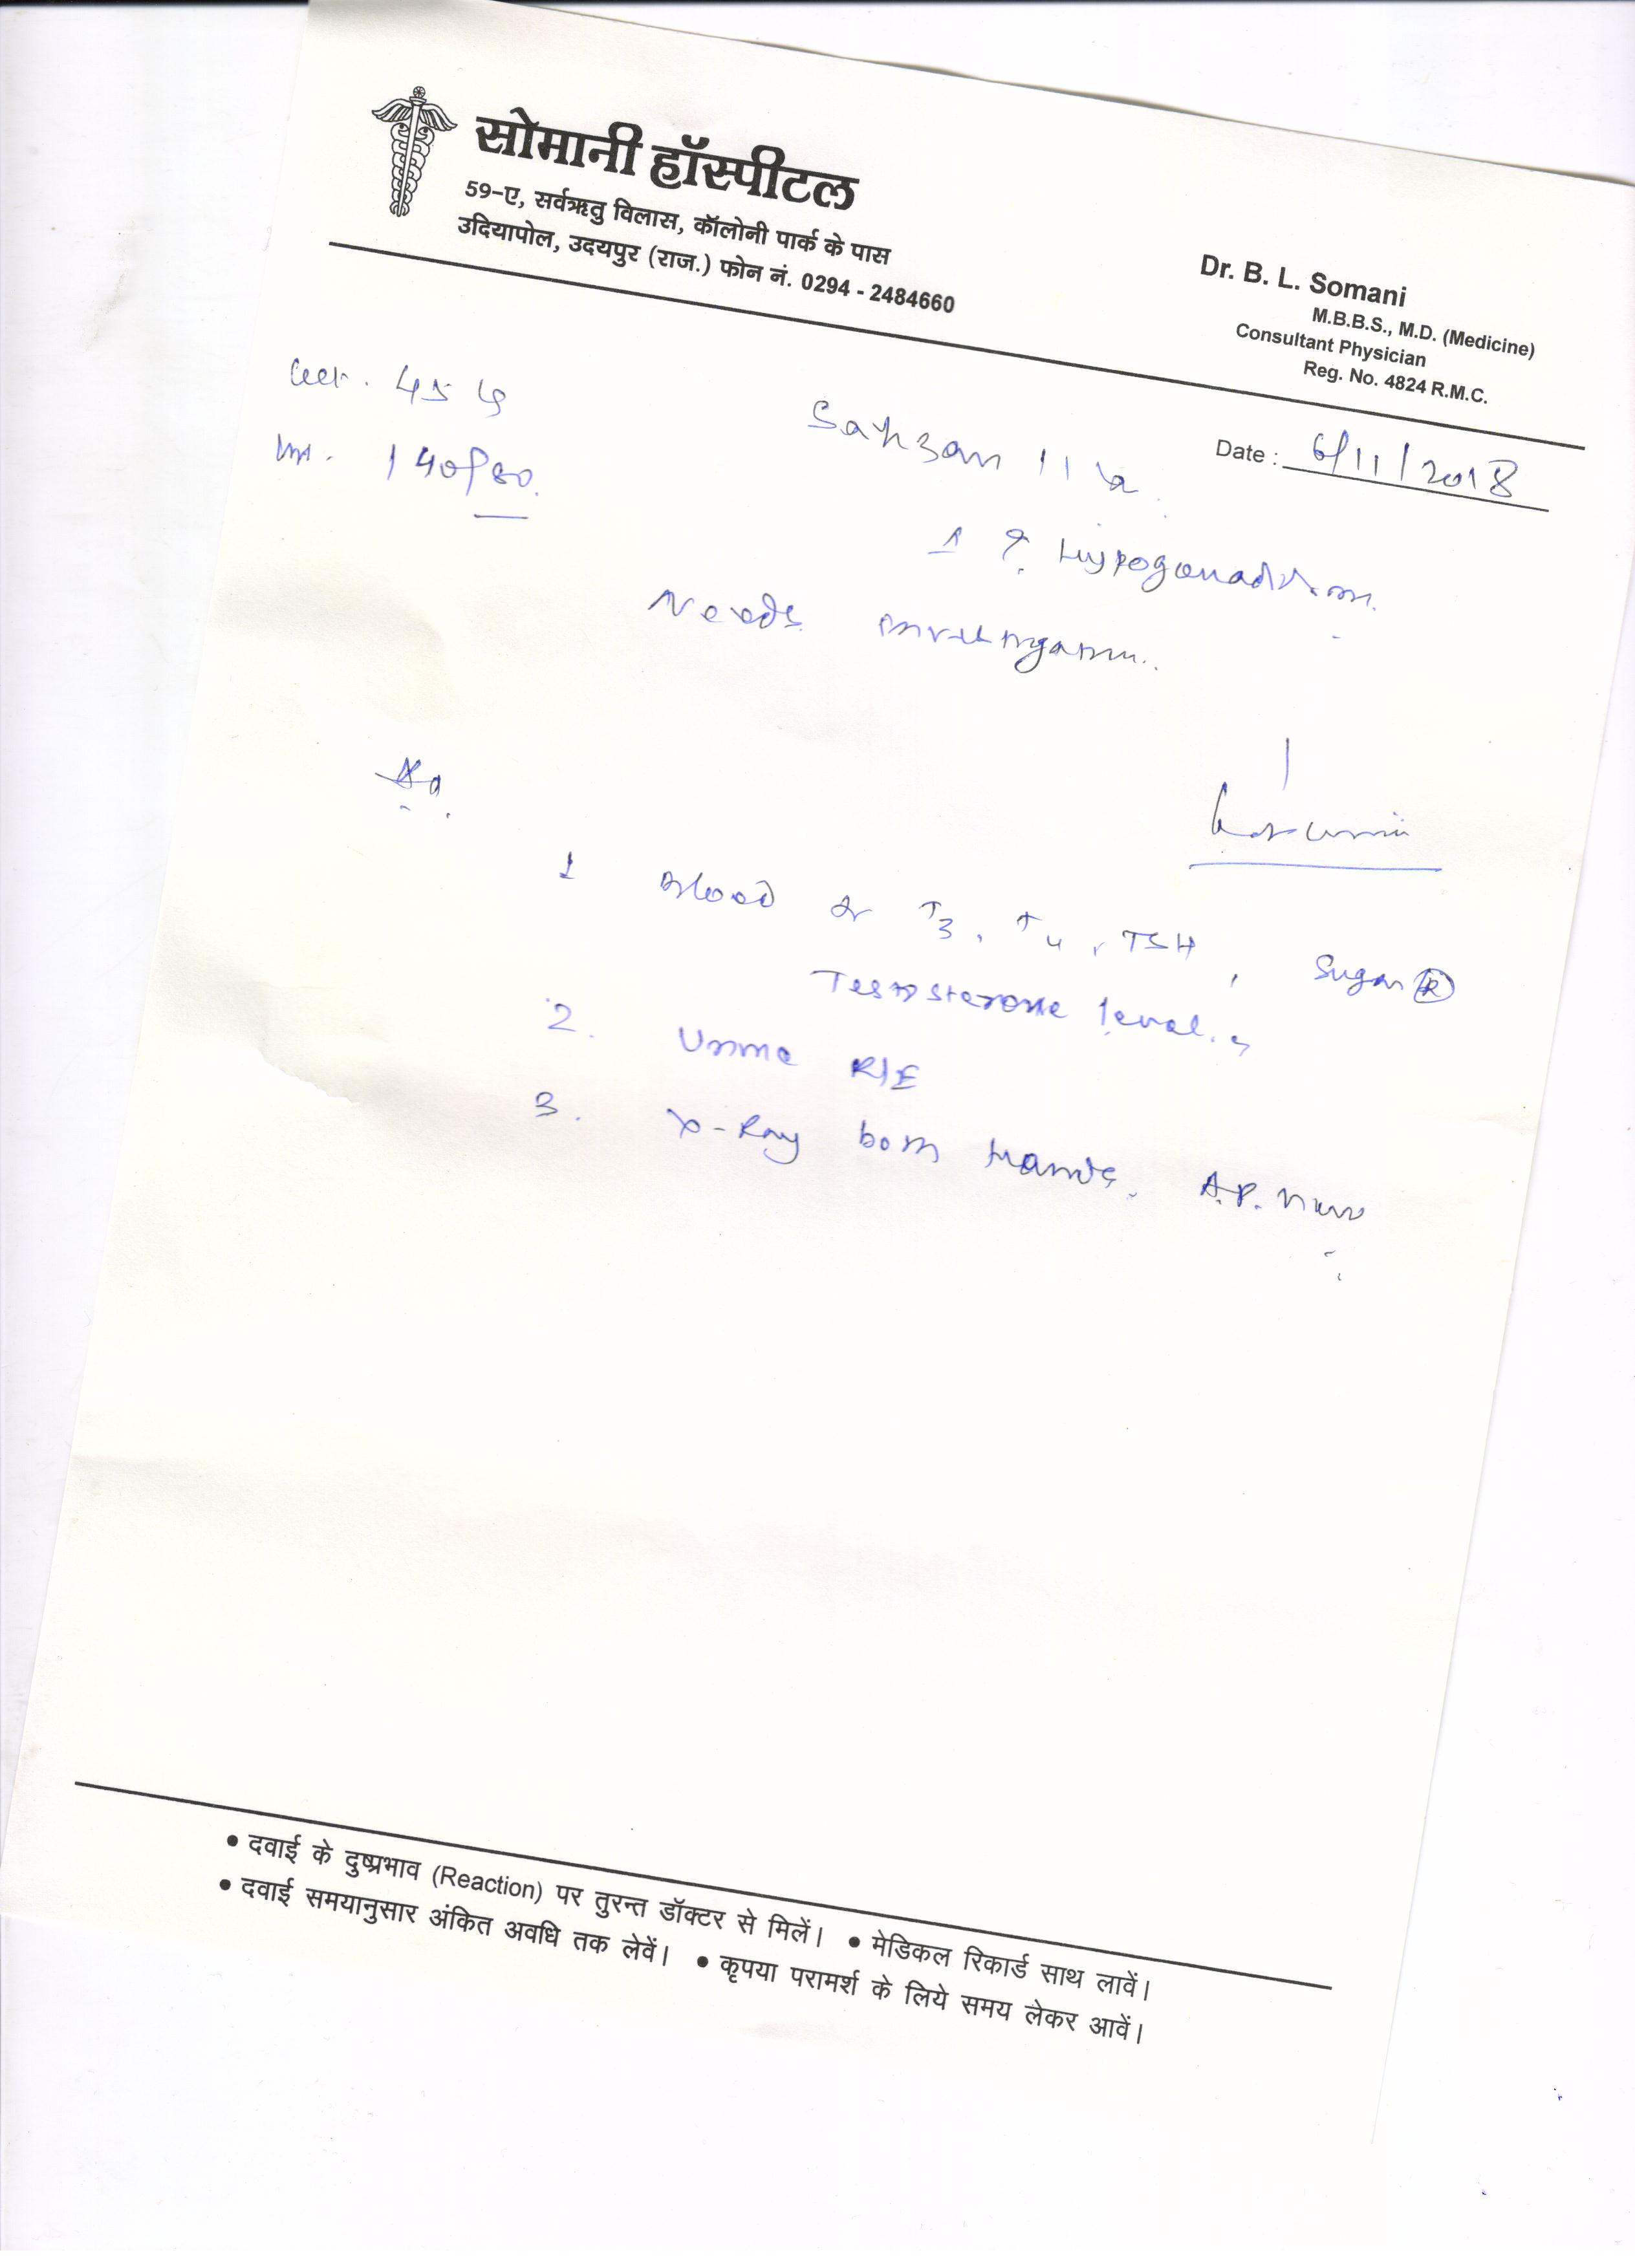 सोमानी हॉस्पीटल
59-ए, सर्वऋतु विलास, कॉलोनी पार्क के पास
उदियापोल, उदयपुर (राज.) फोन नं. 0294 - 2484660
Dr. B. L. Somani
M.B.B.S., M.D. (Medicine)
Consultant Physician
Reg. No. 4824 R.M.C.
Date : 6/11/2018
45 kg
140/80.
11
? Hypogonadism.
Needs investigation..
1 Blood for T3, T4, TSH, Sugar (R)
Testosterone level.
2. Urine R/E
3. X-Ray both hands. A.P. view
• दवाई के दुष्प्रभाव (Reaction) पर तुरन्त डॉक्टर से मिलें। • मेडिकल रिकार्ड साथ लावें।
• दवाई समयानुसार अंकित अवधि तक लेवें। • कृपया परामर्श के लिये समय लेकर आवें।